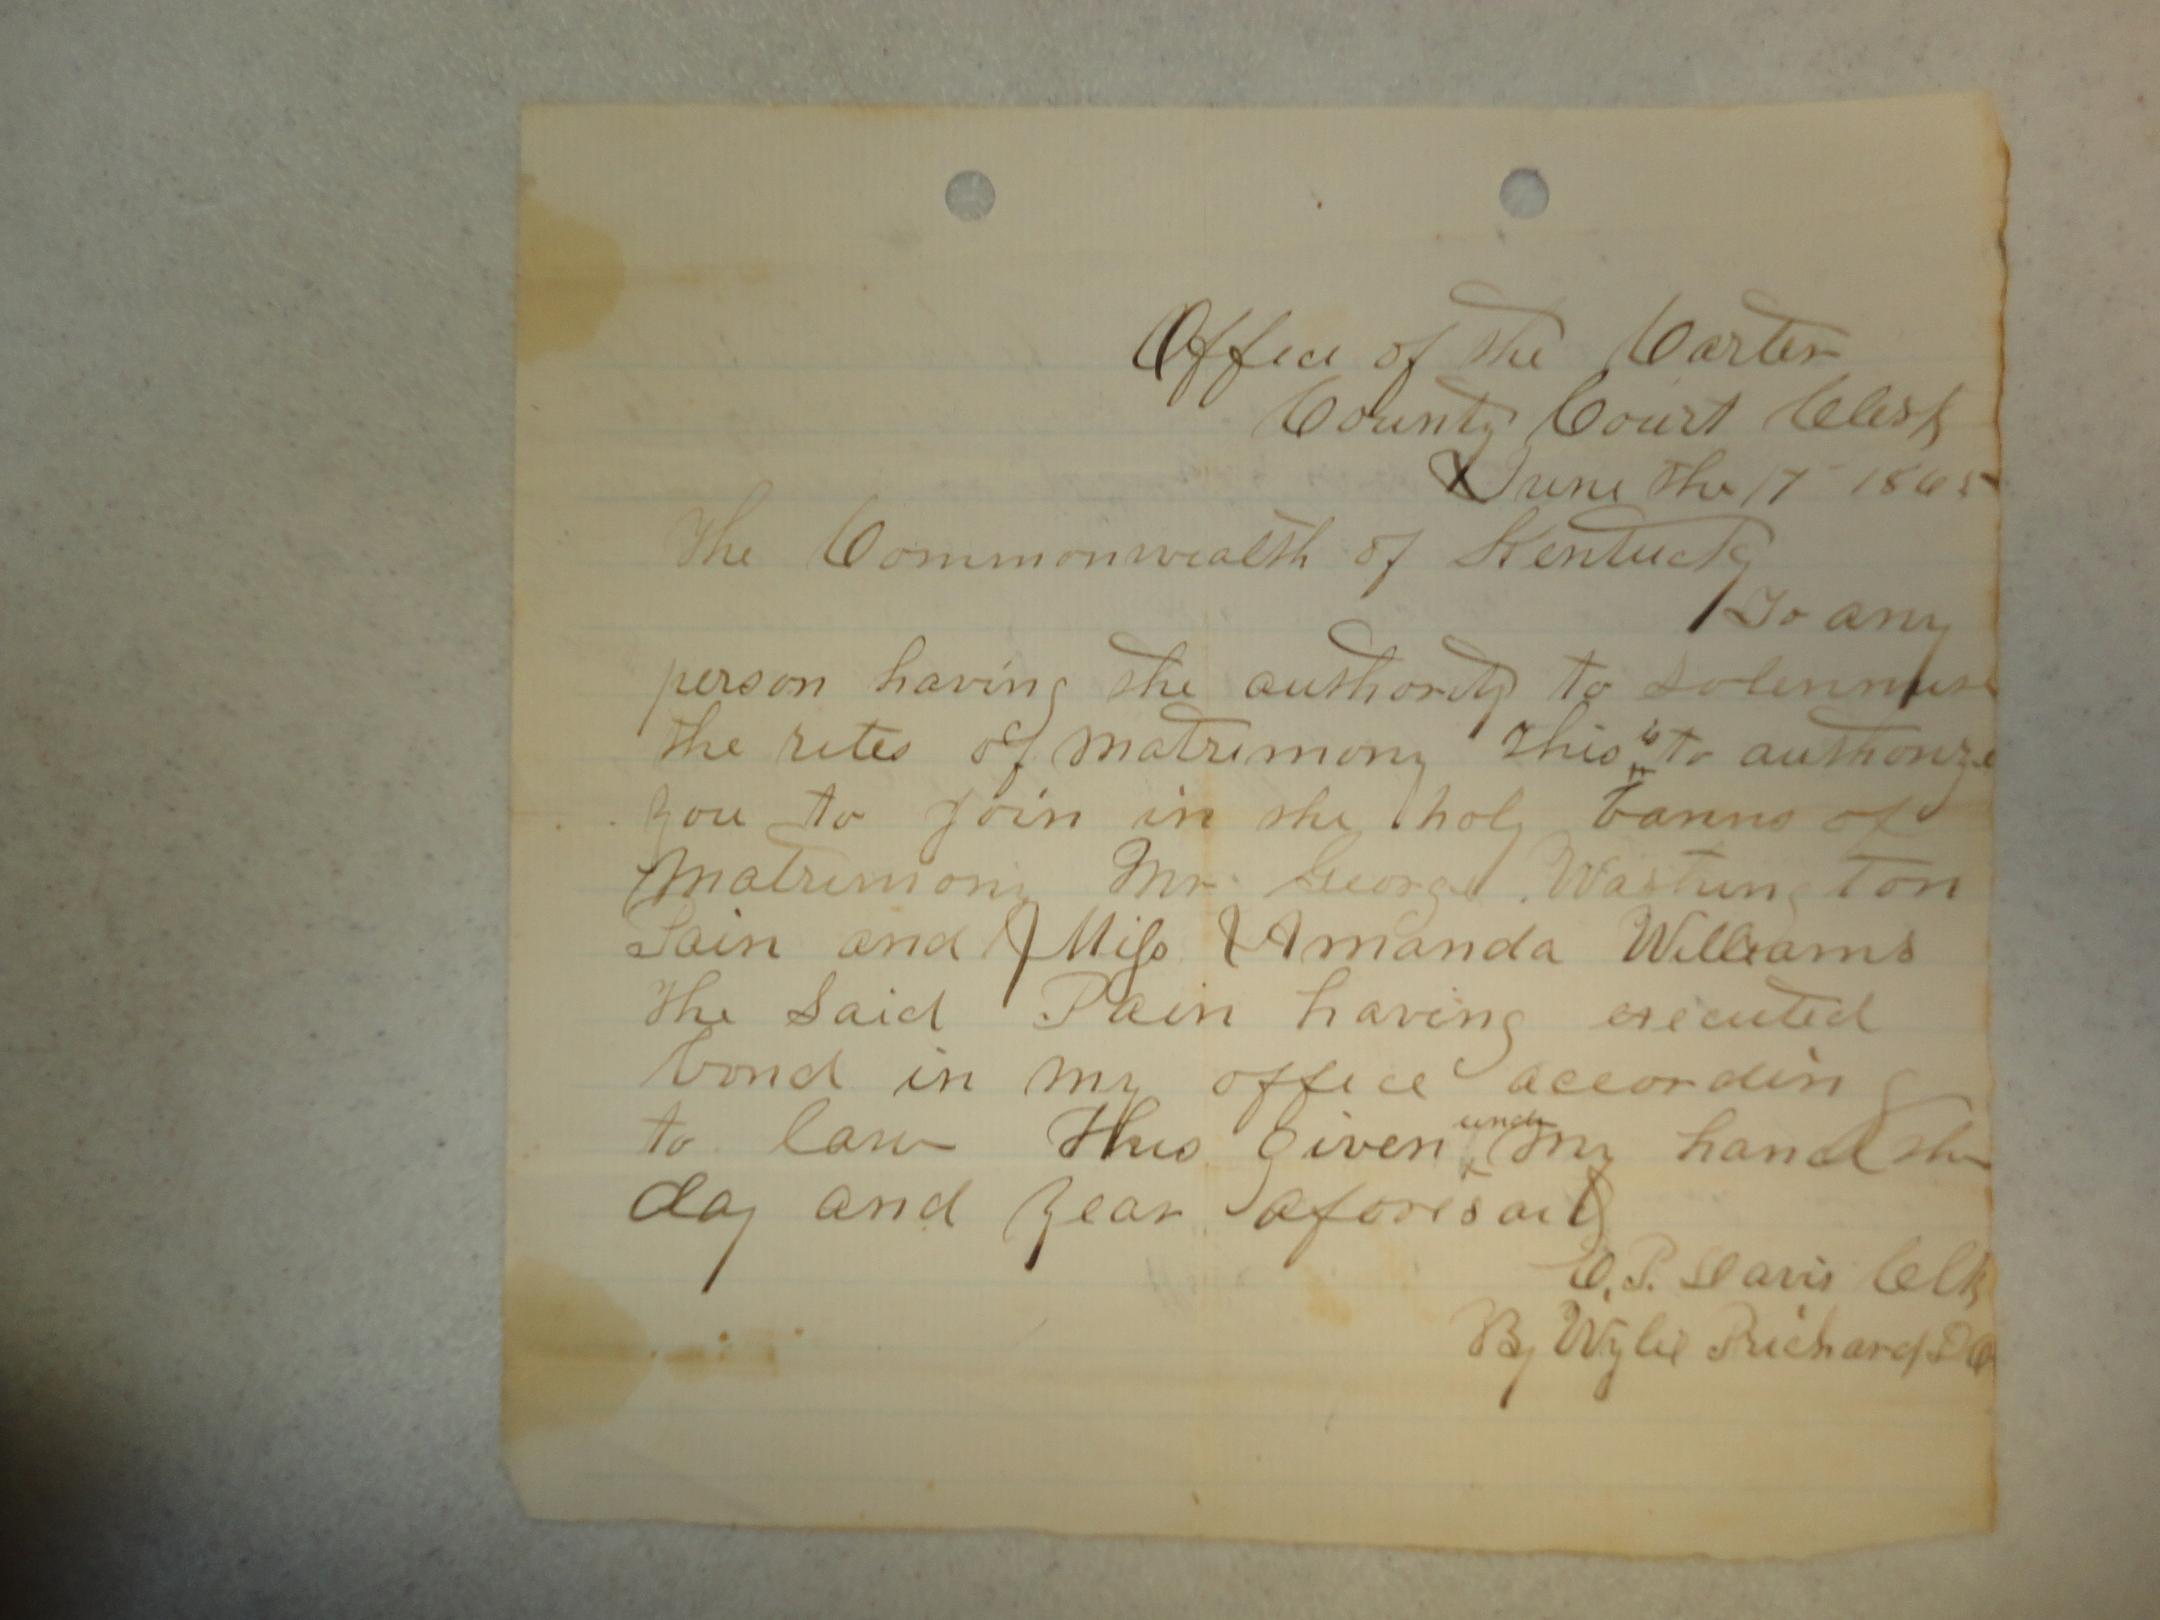 Office of the Carter
County Court Clerk
June the 17 1865
The Commonwealth of Kentucky
To any
person having the authority to solemnise
the rites of matrimony This is to authorize
you to join in the holy banns of
Matrimony Mr George Washington
Pain and Miss Amanda Williams
The Said Pain having executed
bond in my office according
to law This given under my hand the
day and year aforesaid
C.P. Davis Clk
By Wylie Prichard DC